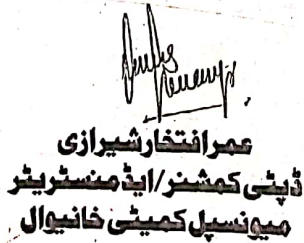 عمر افتخار شیرازی
ڈپٹی کمشنر/ایڈمنسٹریٹر
میونسپل کمیٹی خانیوال